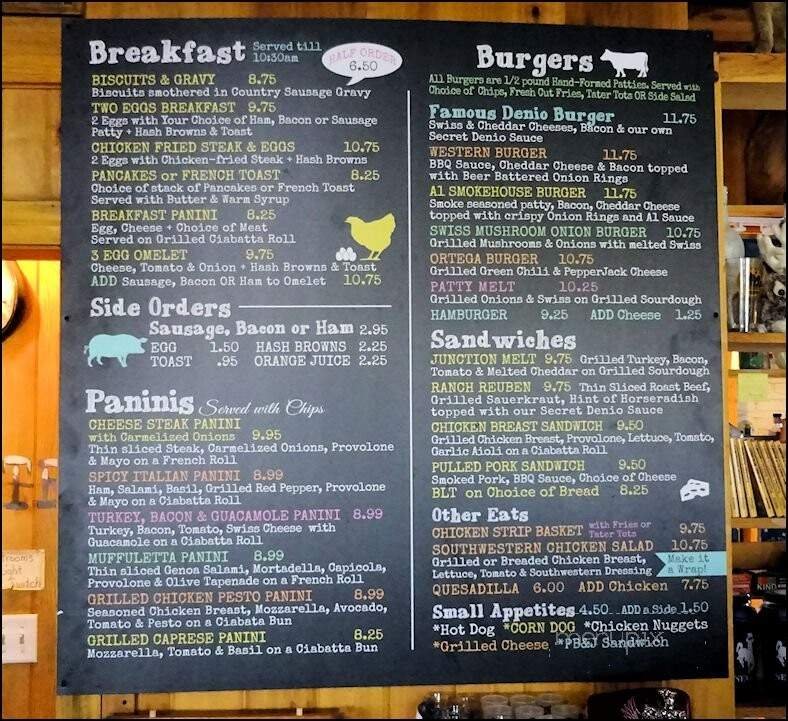 Breakfast Served till 10:30am
HALF ORDER 6.50
BISCUITS & GRAVY 8.75
Biscuits smothered in Country Sausage Gravy
TWO EGGS BREAKFAST 9.75
2 Eggs with Your Choice of Ham, Bacon or Sausage
Patty + Hash Browns & Toast
CHICKEN FRIED STEAK & EGGS 10.75
2 Eggs with Chicken-fried Steak + Hash Browns
PANCAKES or FRENCH TOAST 8.25
Choice of stack of Pancakes or French Toast
Served with Butter & Warm Syrup
BREAKFAST PANINI 8.25
Egg, Cheese + Choice of Meat
Served on Grilled Ciabatta Roll
3 EGG OMELET 9.75
Cheese, Tomato & Onion + Hash Browns & Toast
ADD Sausage, Bacon OR Ham to Omelet 10.75
Side Orders
Sausage, Bacon or Ham 2.95
EGG 1.50 HASH BROWNS 2.25
TOAST .95 ORANGE JUICE 2.25
Paninis Served with Chips
CHEESE STEAK PANINI
with Carmelized Onions 9.95
Thin sliced Steak, Carmelized Onions, Provolone
& Mayo on a French Roll
SPICY ITALIAN PANINI 8.99
Ham, Salami, Basil, Grilled Red Pepper, Provolone
& Mayo on a Ciabatta Roll
TURKEY, BACON & GUACAMOLE PANINI 8.99
Turkey, Bacon, Tomato, Swiss Cheese with
Guacamole on a Ciabatta Roll
MUFFULETTA PANINI 8.99
Thin sliced Genoa Salami, Mortadella, Capicola,
Provolone & Olive Tapenade on a French Roll
GRILLED CHICKEN PESTO PANINI 8.99
Seasoned Chicken Breast, Mozzarella, Avocado,
Tomato & Pesto on a Ciabata Bun
GRILLED CAPRESE PANINI 8.25
Mozzarella, Tomato & Basil on a Ciabatta Bun
Burgers
All Burgers are 1/2 pound Hand-Formed Patties. Served with
Choice of Chips, Fresh Cut Fries, Tater Tots OR Side Salad
Famous Denio Burger 11.75
Swiss & Cheddar Cheeses, Bacon & our own
Secret Denio Sauce
WESTERN BURGER 11.75
BBQ Sauce, Cheddar Cheese & Bacon topped
with Beer Battered Onion Rings
A1 SMOKEHOUSE BURGER 11.75
Smoke seasoned patty, Bacon, Cheddar Cheese
topped with crispy Onion Rings and A1 Sauce
SWISS MUSHROOM ONION BURGER 10.75
Grilled Mushrooms & Onions with melted Swiss
ORTEGA BURGER 10.75
Grilled Green Chili & PepperJack Cheese
PATTY MELT 10.25
Grilled Onions & Swiss on Grilled Sourdough
HAMBURGER 9.25 ADD Cheese 1.25
Sandwiches
JUNCTION MELT 9.75 Grilled Turkey, Bacon,
Tomato & Melted Cheddar on Grilled Sourdough
RANCH REUBEN 9.75 Thin Sliced Roast Beef,
Grilled Sauerkraut, Hint of Horseradish
topped with our Secret Denio Sauce
CHICKEN BREAST SANDWICH 9.50
Grilled Chicken Breast, Provolone, Lettuce, Tomato,
Garlic Aioli on a Ciabatta Roll
PULLED PORK SANDWICH 9.50
Smoked Pork, BBQ Sauce, Choice of Cheese
BLT on Choice of Bread 8.25
Other Eats
CHICKEN STRIP BASKET with Fries or Tater Tots 9.75
SOUTHWESTERN CHICKEN SALAD 10.75
Grilled or Breaded Chicken Breast,
Lettuce, Tomato & Southwestern Dressing
Make it a Wrap!
QUESADILLA 6.00 ADD Chicken 7.75
Small Appetites 4.50 ADD a Side 1.50
*Hot Dog *CORN DOG *Chicken Nuggets
*Grilled Cheese *PB&J Sandwich
menupix